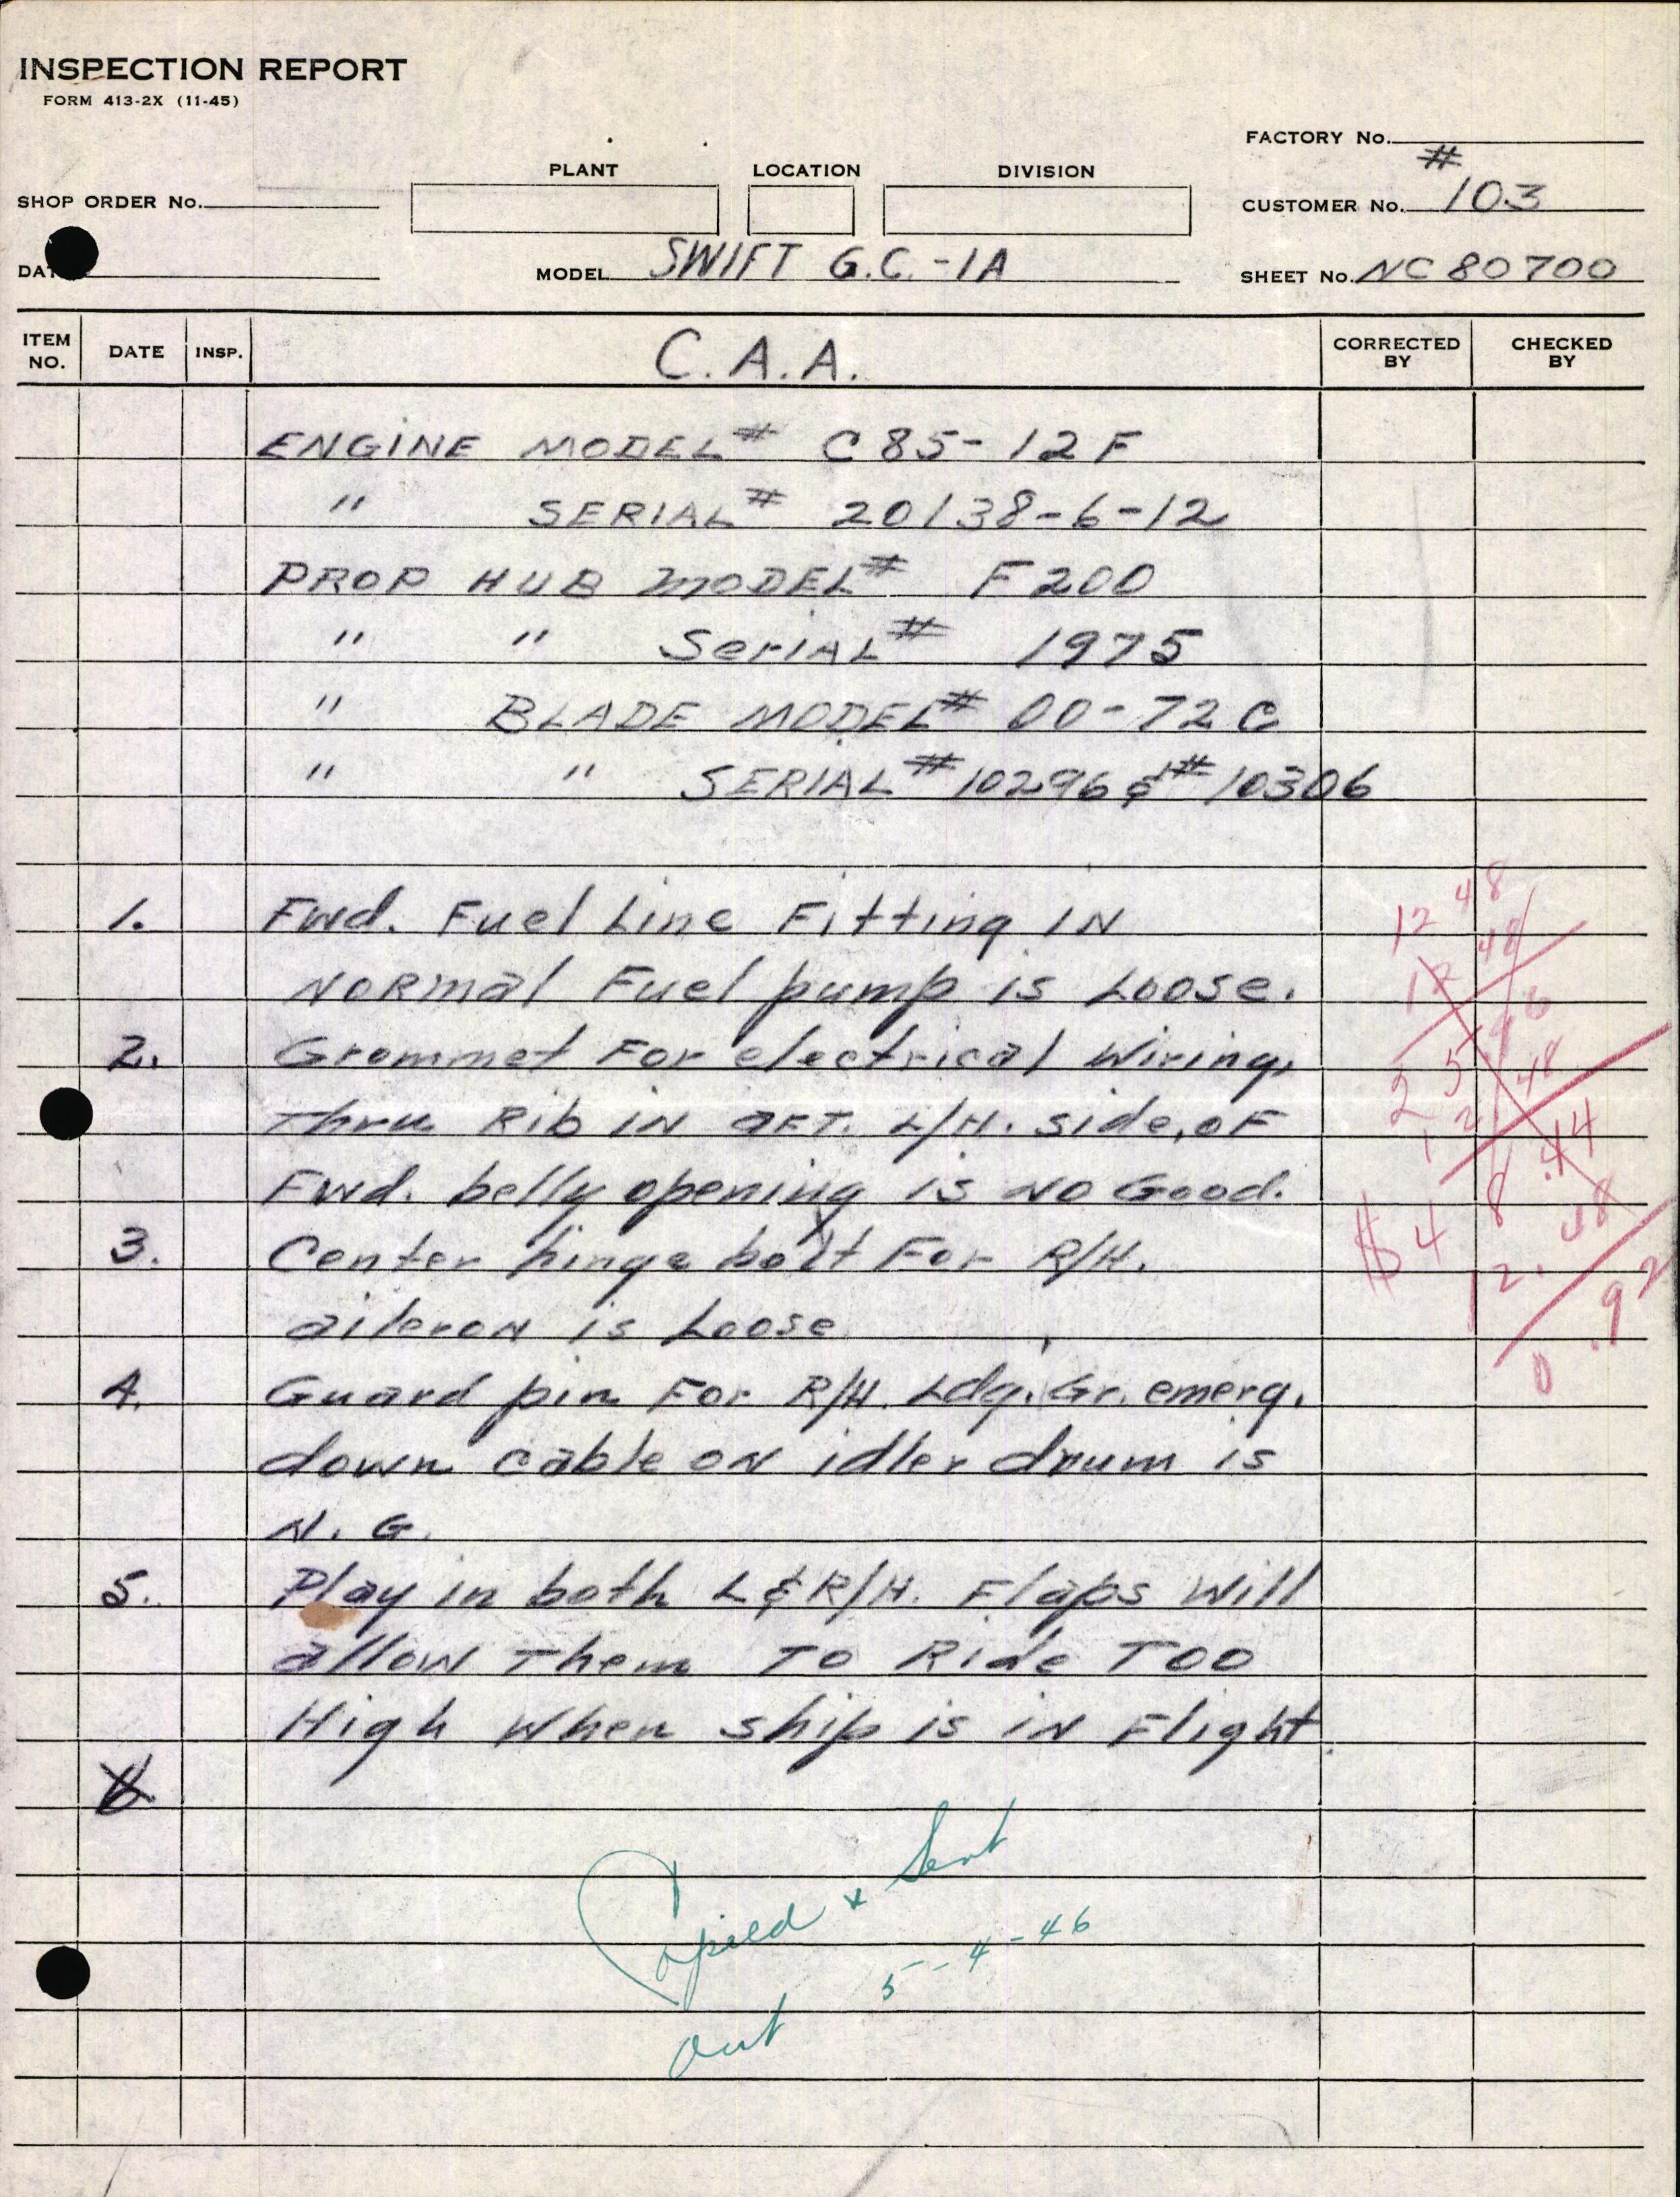 INSPECTION REPORT
FORM 413-2X (11-45)
FACTORY No.
PLANT LOCATION DIVISION
SHOP ORDER No. CUSTOMER No. #103
DATE MODEL SWIFT G.C.-1A SHEET No. NC80700
ITEM NO. DATE INSP. C.A.A. CORRECTED BY CHECKED BY
ENGINE MODEL# C85-12F
" SERIAL# 20138-6-12
PROP HUB MODEL# F200
" " SeriAL# 1975
" BLADE MODEL# 00-72C
" " SERIAL #10296 & #10306
1. Fwd. Fuel Line Fitting IN
NORMal Fuel pump is Loose.
2. Grommet For electrical Wiring,
Thru Rib iN aFT. L/H. side, oF
Fwd. belly opening is NO Good.
3. Center hinge bolt For R/H.
aileron is Loose
4. Guard pin For R/H. Ldg. Gr. emerg.
down cable ON idler drum is
N. G.
5. Play in both L&R/H. Flaps Will
allow Them TO Ride TOO
High When ship is iN Flight.
Copied & Sent
out 5-4-46